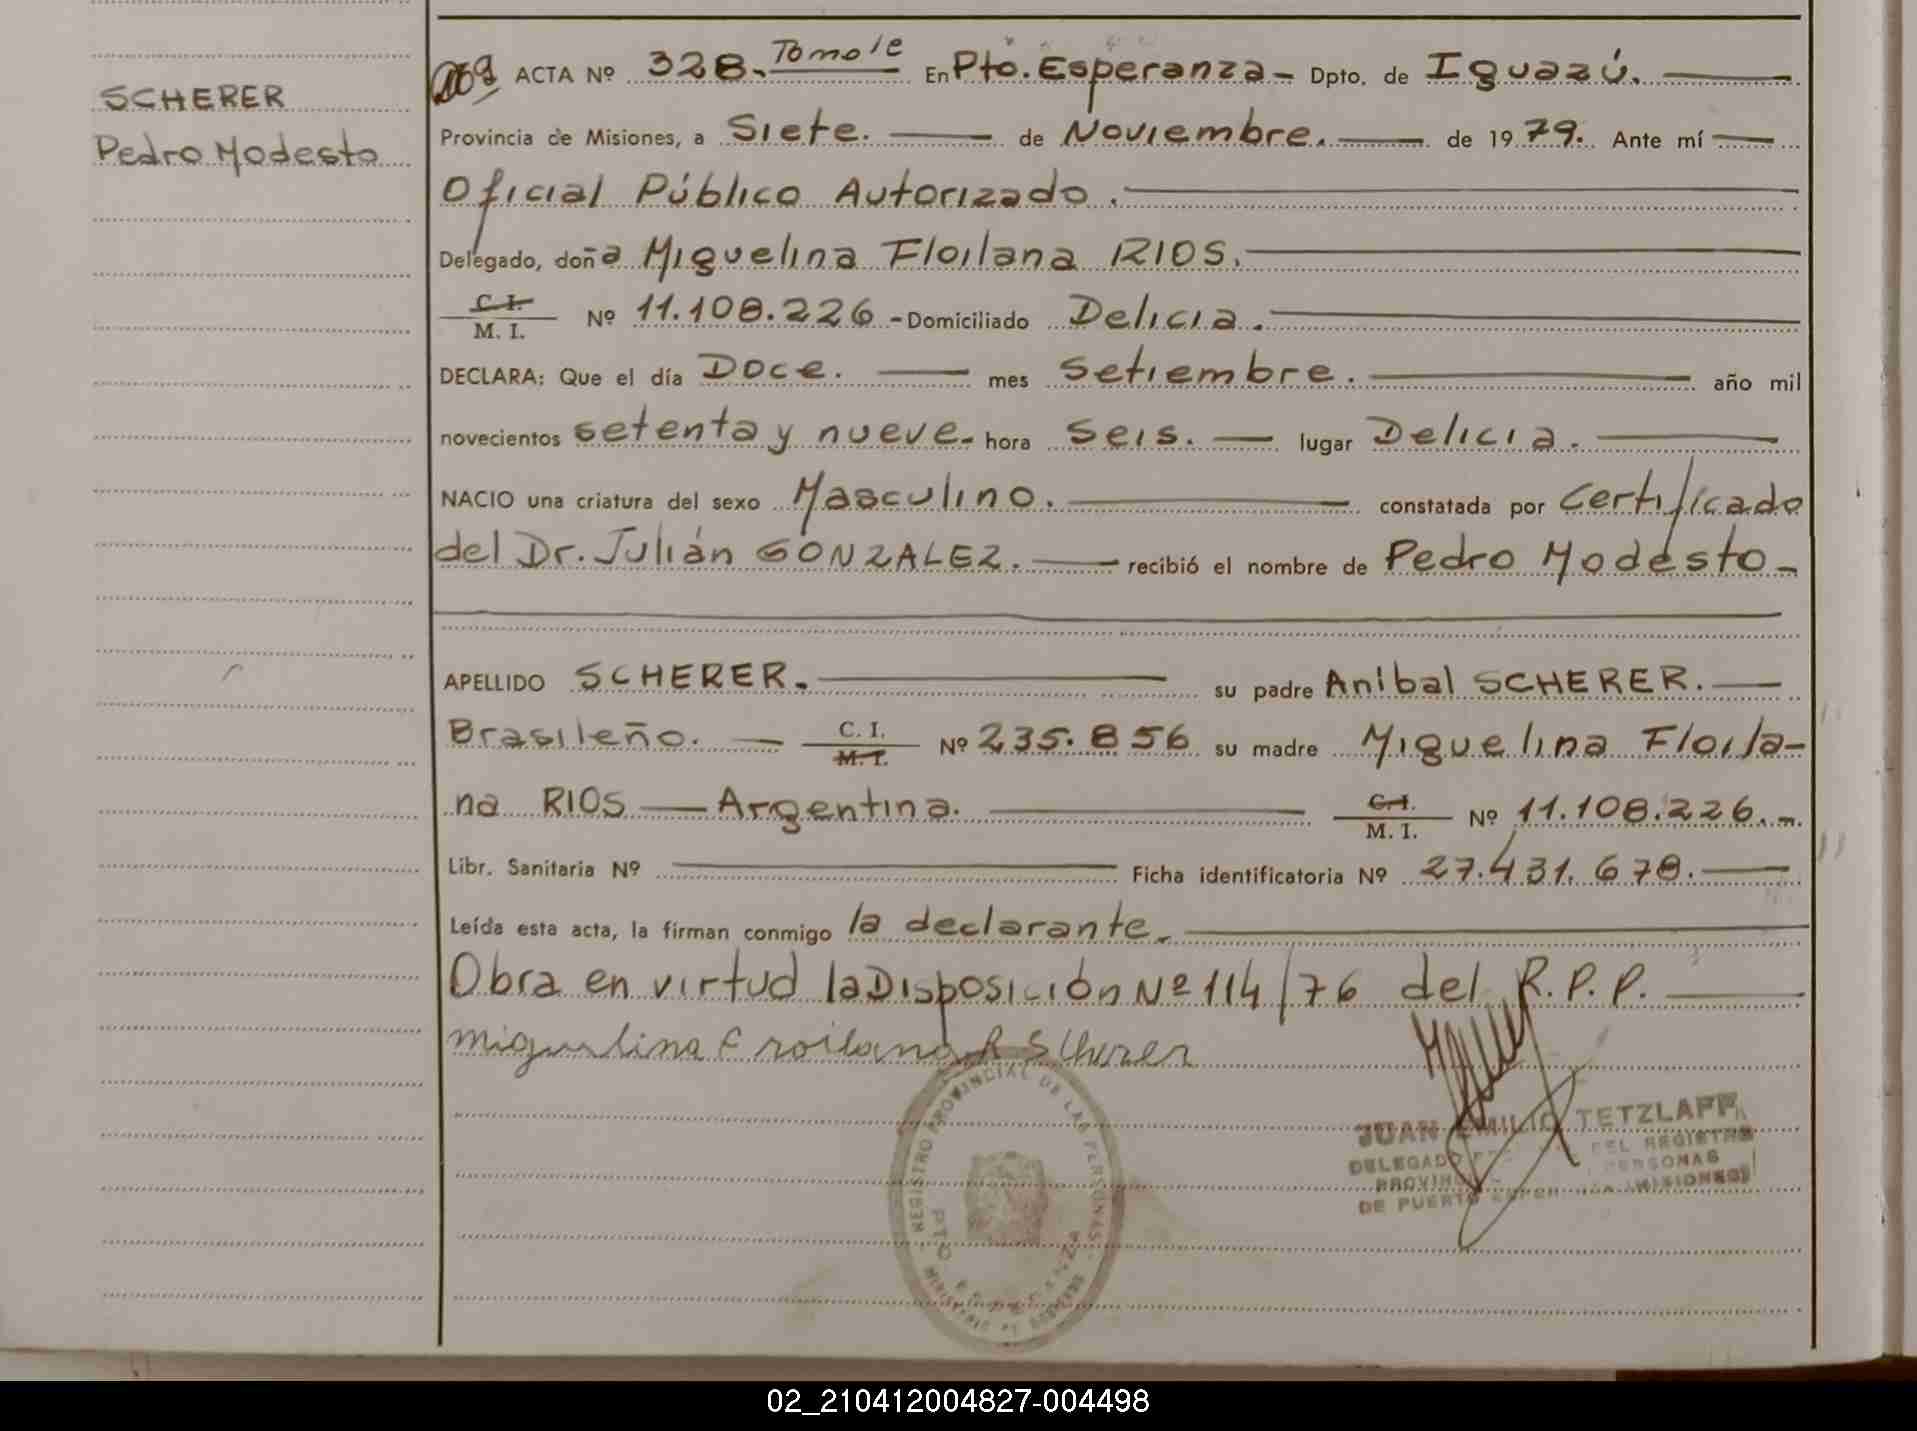 SCHERER
Pedro Modesto
ACTA Nº 328. Tomo 1º En Pto. Esperanza - Dpto. de Iguazú.
Provincia de Misiones, a Siete. de Noviembre. de 1979. Ante mí
Oficial Público Autorizado.
Delegado, doña Miguelina Floilana RIOS.
C. I.
M. I. Nº 11.108.226 - Domiciliado Delicia.
DECLARA: Que el día Doce. mes Setiembre. año mil
novecientos setenta y nueve - hora Seis. lugar Delicia.
NACIO una criatura del sexo Masculino. constatada por Certificado
del Dr. Julián GONZALEZ. recibió el nombre de Pedro Modesto -
APELLIDO SCHERER. su padre Aníbal SCHERER.
Brasileño. C. I. M. I. Nº 235.856 su madre Miguelina Floila-
na RIOS Argentina. C. I. M. I. Nº 11.108.226. -
Libr. Sanitaria Nº Ficha identificatoria Nº 27.431.678.
Leída esta acta, la firman conmigo la declarante.
Obra en virtud la Disposición Nº 114/76 del R.P.P.
Miguelina Froilana R Scherer
REGISTRO PROVINCIAL DE LAS PERSONAS
PTO ESPERANZA
MINISTERIO DE GOBIERNO
JUAN EMILIO TETZLAFF
DELEGADO DEL REGISTRO
PERSONAS
DE PUERTO ESPERANZA (MISIONES)
02_210412004827-004498